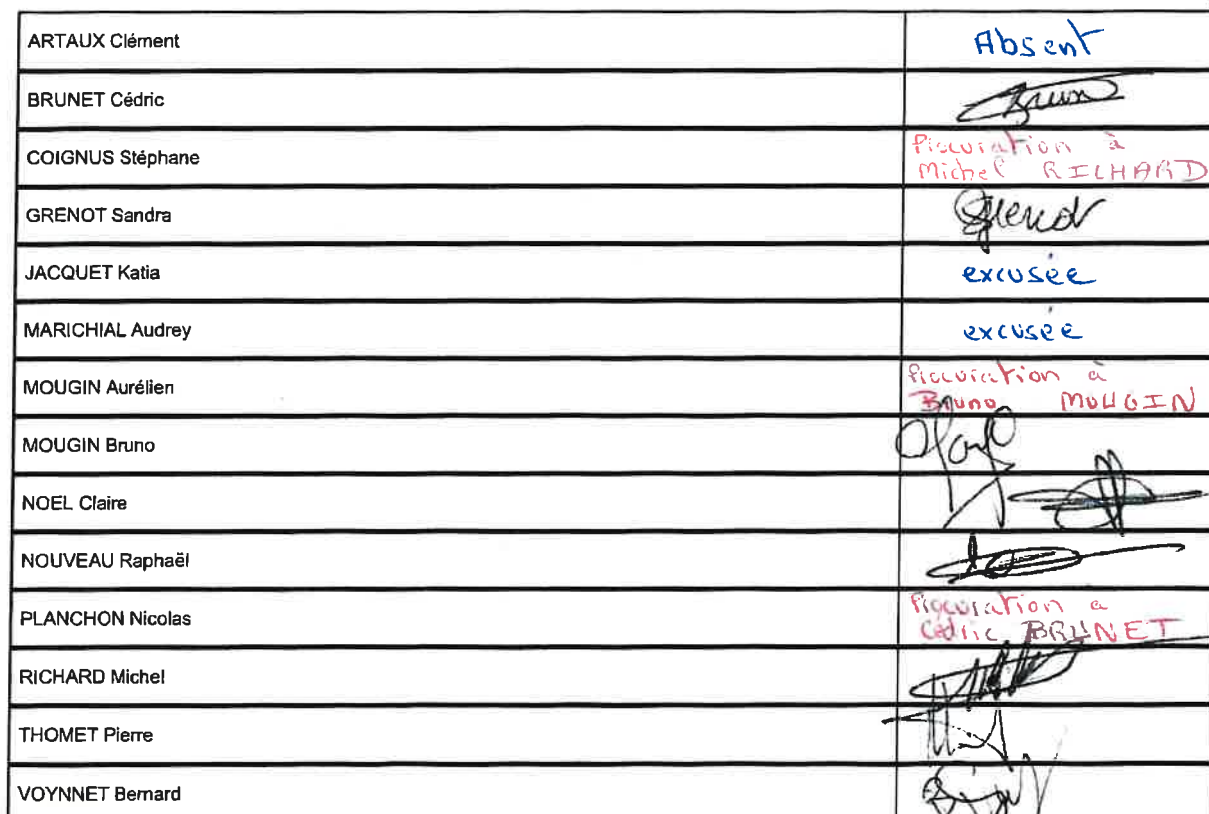 ARTAUX Clément Absent
BRUNET Cédric
COIGNUS Stéphane Procuration à
Michel RICHARD
GRENOT Sandra Grenot
JACQUET Katia excusée
MARICHIAL Audrey excusée
MOUGIN Aurélien Procuration à
Bruno MOUGIN
MOUGIN Bruno
NOEL Claire
NOUVEAU Raphaël
PLANCHON Nicolas Procuration a
Cédric BRUNET
RICHARD Michel
THOMET Pierre
VOYNNET Bernard